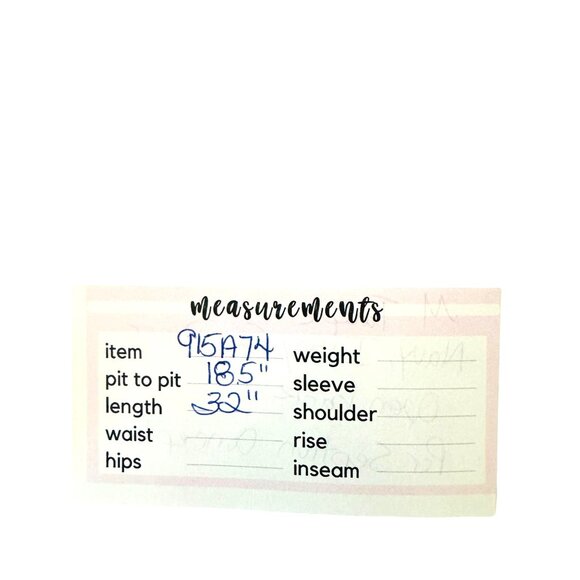 measurements
item 915A74
pit to pit 18.5"
length 32"
waist
hips
weight
sleeve
shoulder
rise
inseam